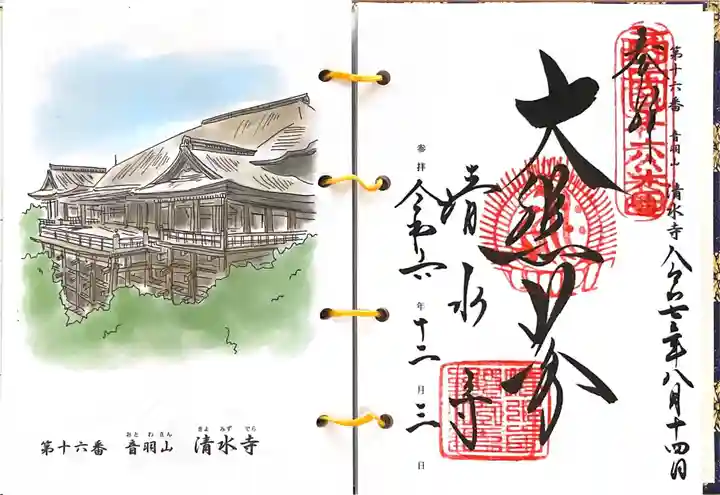 第十六番 音羽山 清水寺
おと わ さん きよ みず でら
奉拝
第十六番 音羽山 清水寺
令和七年八月十四日
大悲閣
清水寺
参拝 令和六年十二月三日